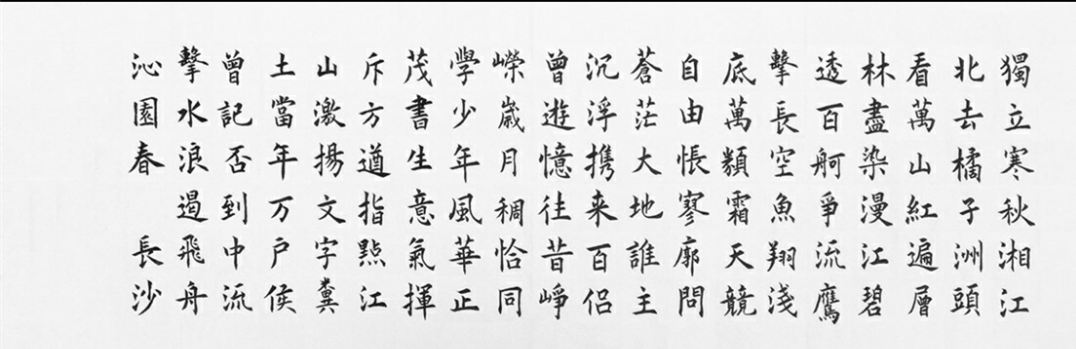 獨立寒秋湘江
北去橘子洲頭
看萬山紅遍層
林盡染漫江碧
透百舸爭流鷹
擊長空魚翔淺
底萬類霜天競
自由悵寥廓問
蒼茫大地誰主
沉浮携来百侣
曾遊憶往昔崢
嶸嵗月稠恰同
學少年風華正
茂書生意氣揮
斥方遒指點江
山激揚文字糞
土當年万户侯
曾記否到中流
擊水浪遏飛舟
沁園春 長沙